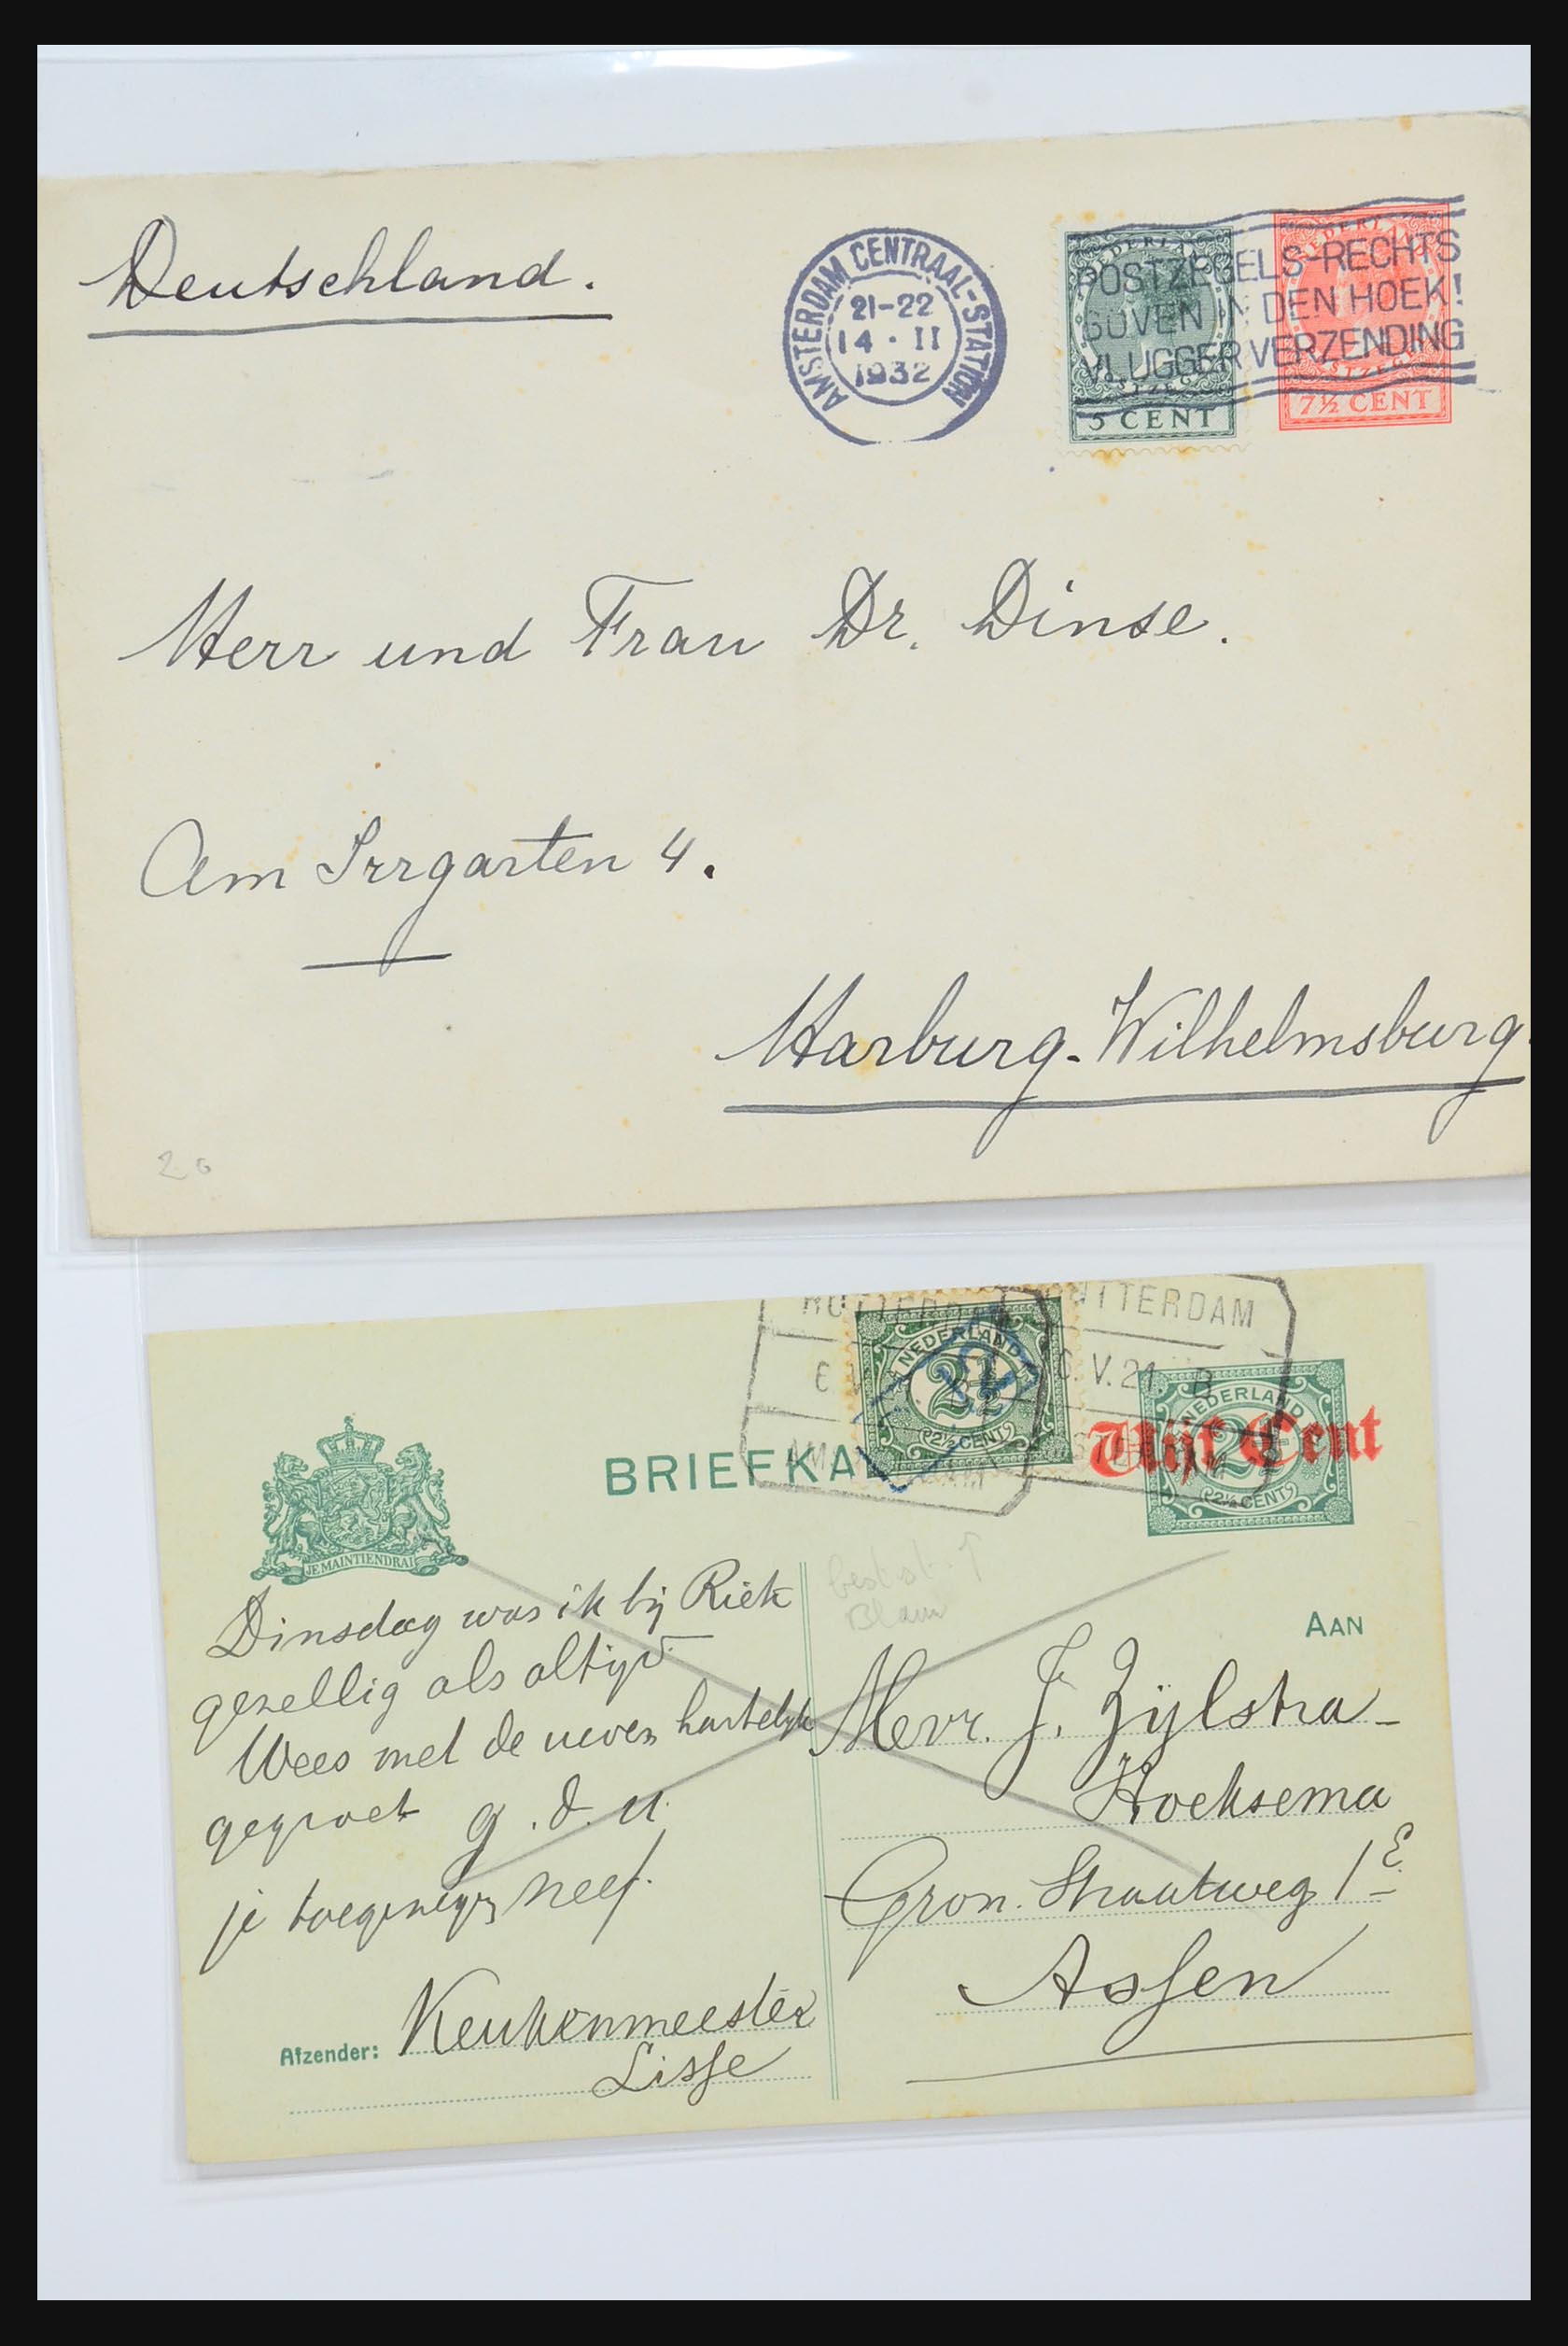 Deutschland.
AMSTERDAM CENTRAAL-STATION
21-22
14 · II
1932
POSTZEGELS-RECHTS
BOVEN IN DEN HOEK!
VLUGGER VERZENDING
5 CENT
7½ CENT
Herr und Frau Dr. Dinse.
Am Irrgarten 4.
Harburg-Wilhelmsburg.
20
ROTTERDAM
ROTTERDAM
6.V.21 B
NEDERLAND
2½
2½ CENT
NEDERLAND
2½ CENT
Vijf Cent
BRIEFKA
JE MAINTIENDRAI
best st. ↑
Blauw
AAN
Dinsdag was ik bij Riek
gezellig als altijd.
Wees met de neven hartelijk
gegroet g.d.u.
je toegenegen neef.
Mevr. J. Zijlstra-
Hoeksema
Gron. Straatweg 1E
Assen
Afzender: Keukenmeester
Lisse